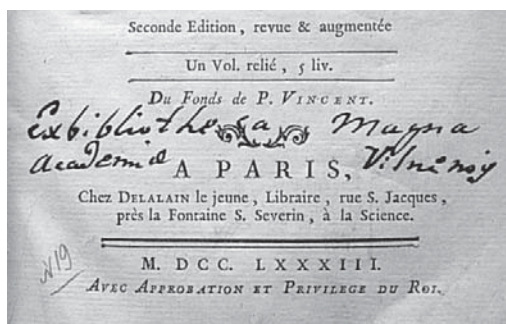 Seconde Edition, revue & augmentée
Un Vol. relié, 5 liv.
Du Fonds de P. VINCENT.
Exbibliotheca Magna
Academiæ Vilnensis
A PARIS,
Chez DELALAIN le jeune, Libraire, rue S. Jacques,
près la Fontaine S. Severin, à la Science.
M. DCC. LXXXIII.
AVEC APPROBATION ET PRIVILEGE DU ROI.
N19